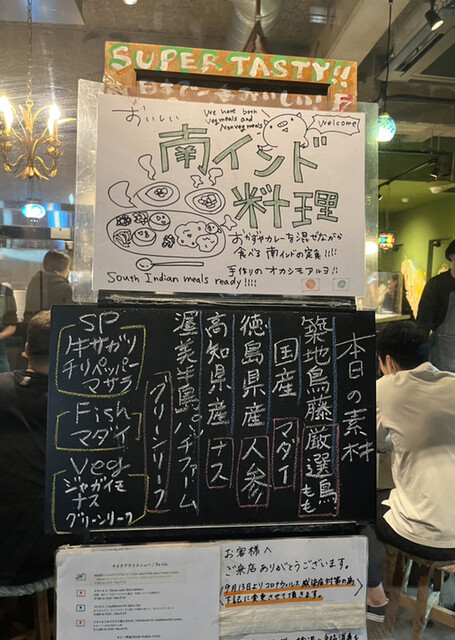 SUPER TASTY!!
おいしい
We have both
Veg meals and
Nonveg meals
Welcome
南インド
料理
おかずやカレーを混ぜながら
食べる 南インドの定食!!!!
手作りのオカシモアルヨ!!
South Indian meals
ready!!!!
本日の素材
築地鳥藤 厳選鳥もも
国産 マダイ
徳島県産 人参
高知県産 ナス
渥美半島
グリーンリーフ
SP
牛サガリ
チリペッパー
マサラ
Fish
マダイ
Veg
ジャガイモ
ナス
グリーンリーフ
テイクアウトメニュー / To Go
お客様へ
ご来店ありがとうございます。
9月13日よりコロナウィルス感染症対策の為
下記に変更させて頂きます。